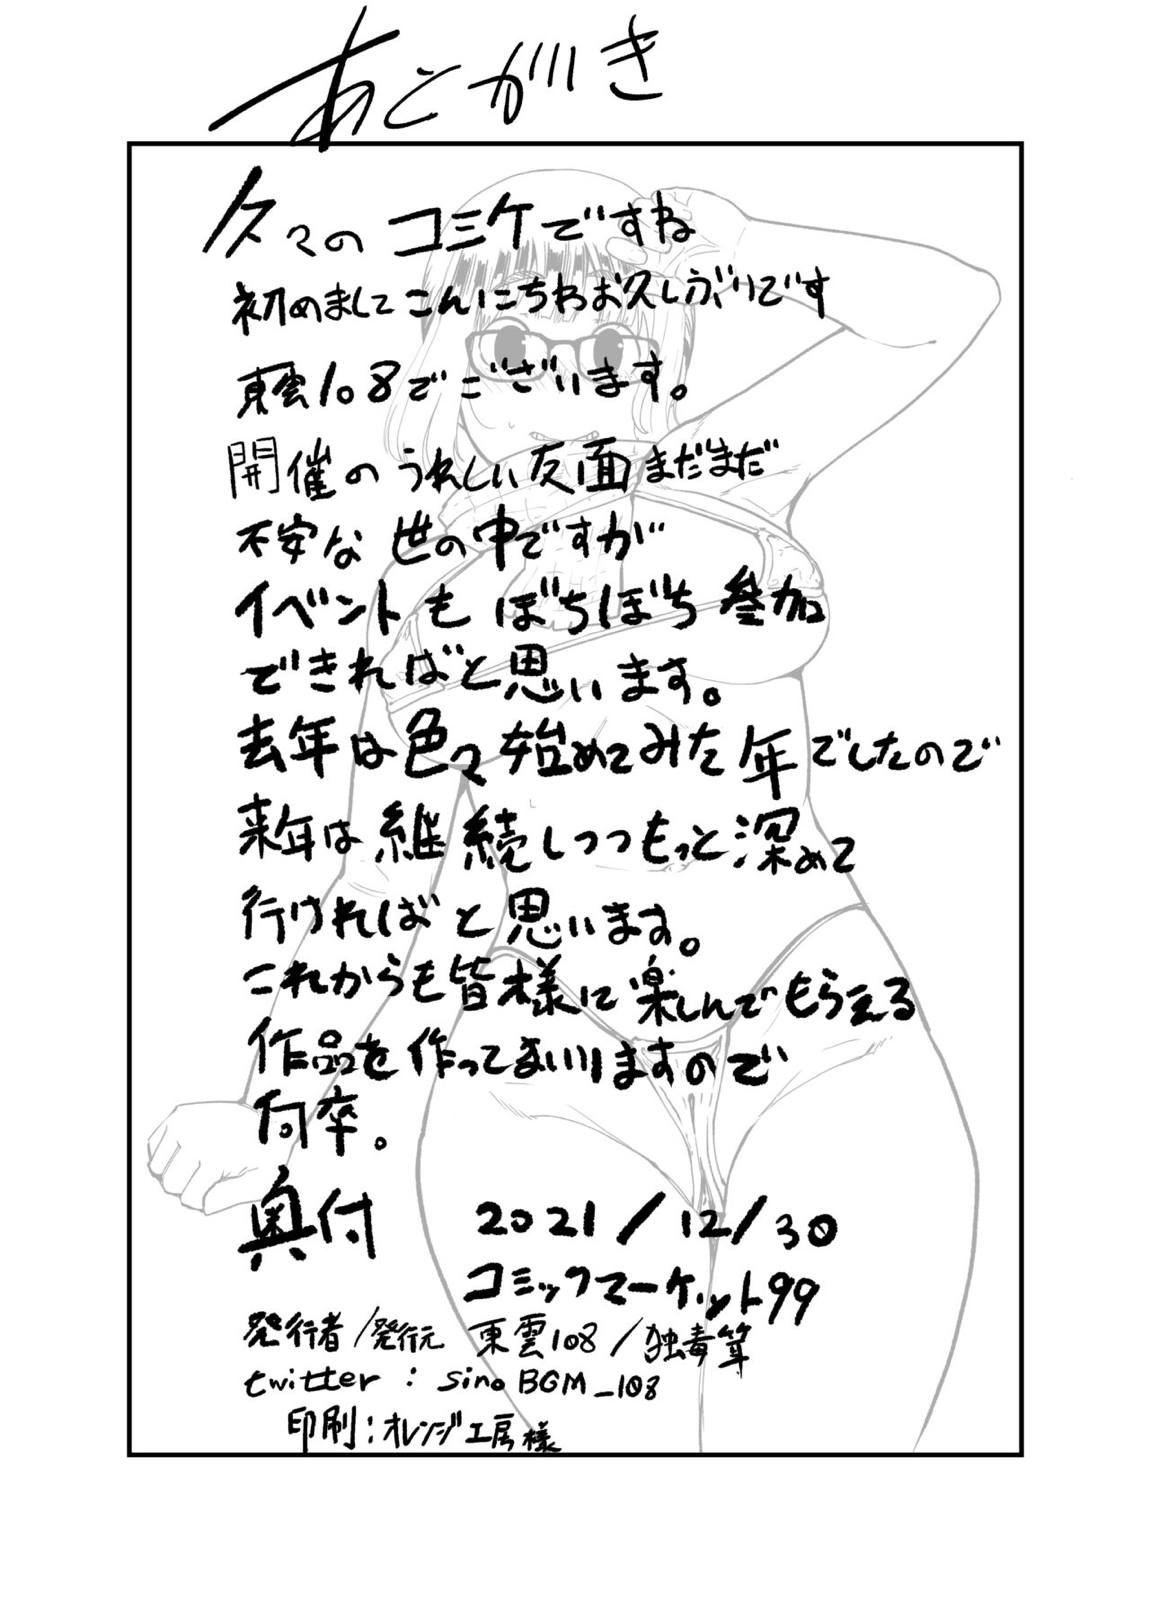 あとがき
久々のコミケですね
初めましてこんにちわお久しぶりです
東雲108でございます。
開催のうれしい反面まだまだ
不安な世の中ですが
イベントもぼちぼち参加
できればと思います。
去年は色々始めてみた年でしたので
来年は継続しつつもっと深めて
行ければと思います。
これからも皆様に楽しんでもらえる
作品を作ってまいりますので
何卒。
奥付 2021/12/30
コミックマーケット99
発行者/発行元 東雲108/独毒筆
twitter : sinoBGM_108
印刷:オレンジ工房様